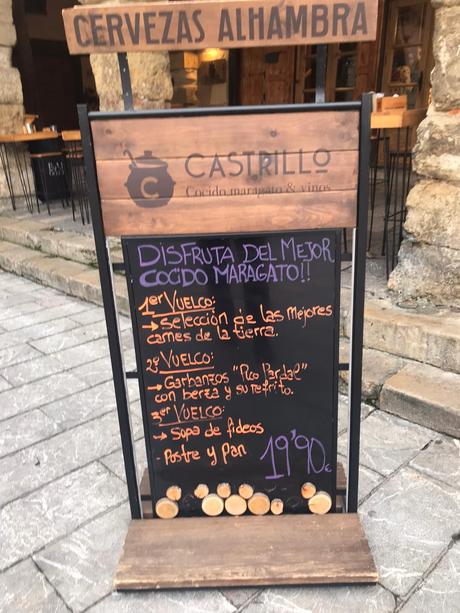 CERVEZAS ALHAMBRA
C
CASTRILLO
Cocido maragato & vinos
DISFRUTA DEL MEJOR
COCIDO MARAGATO!!
1er VUELCO:
→ Selección de las mejores
carnes de la tierra.
2º VUELCO:
→ Garbanzos "Pico Pardal"
con berza y su refrito.
3er VUELCO:
→ Sopa de fideos
· Postre y Pan
19'90€